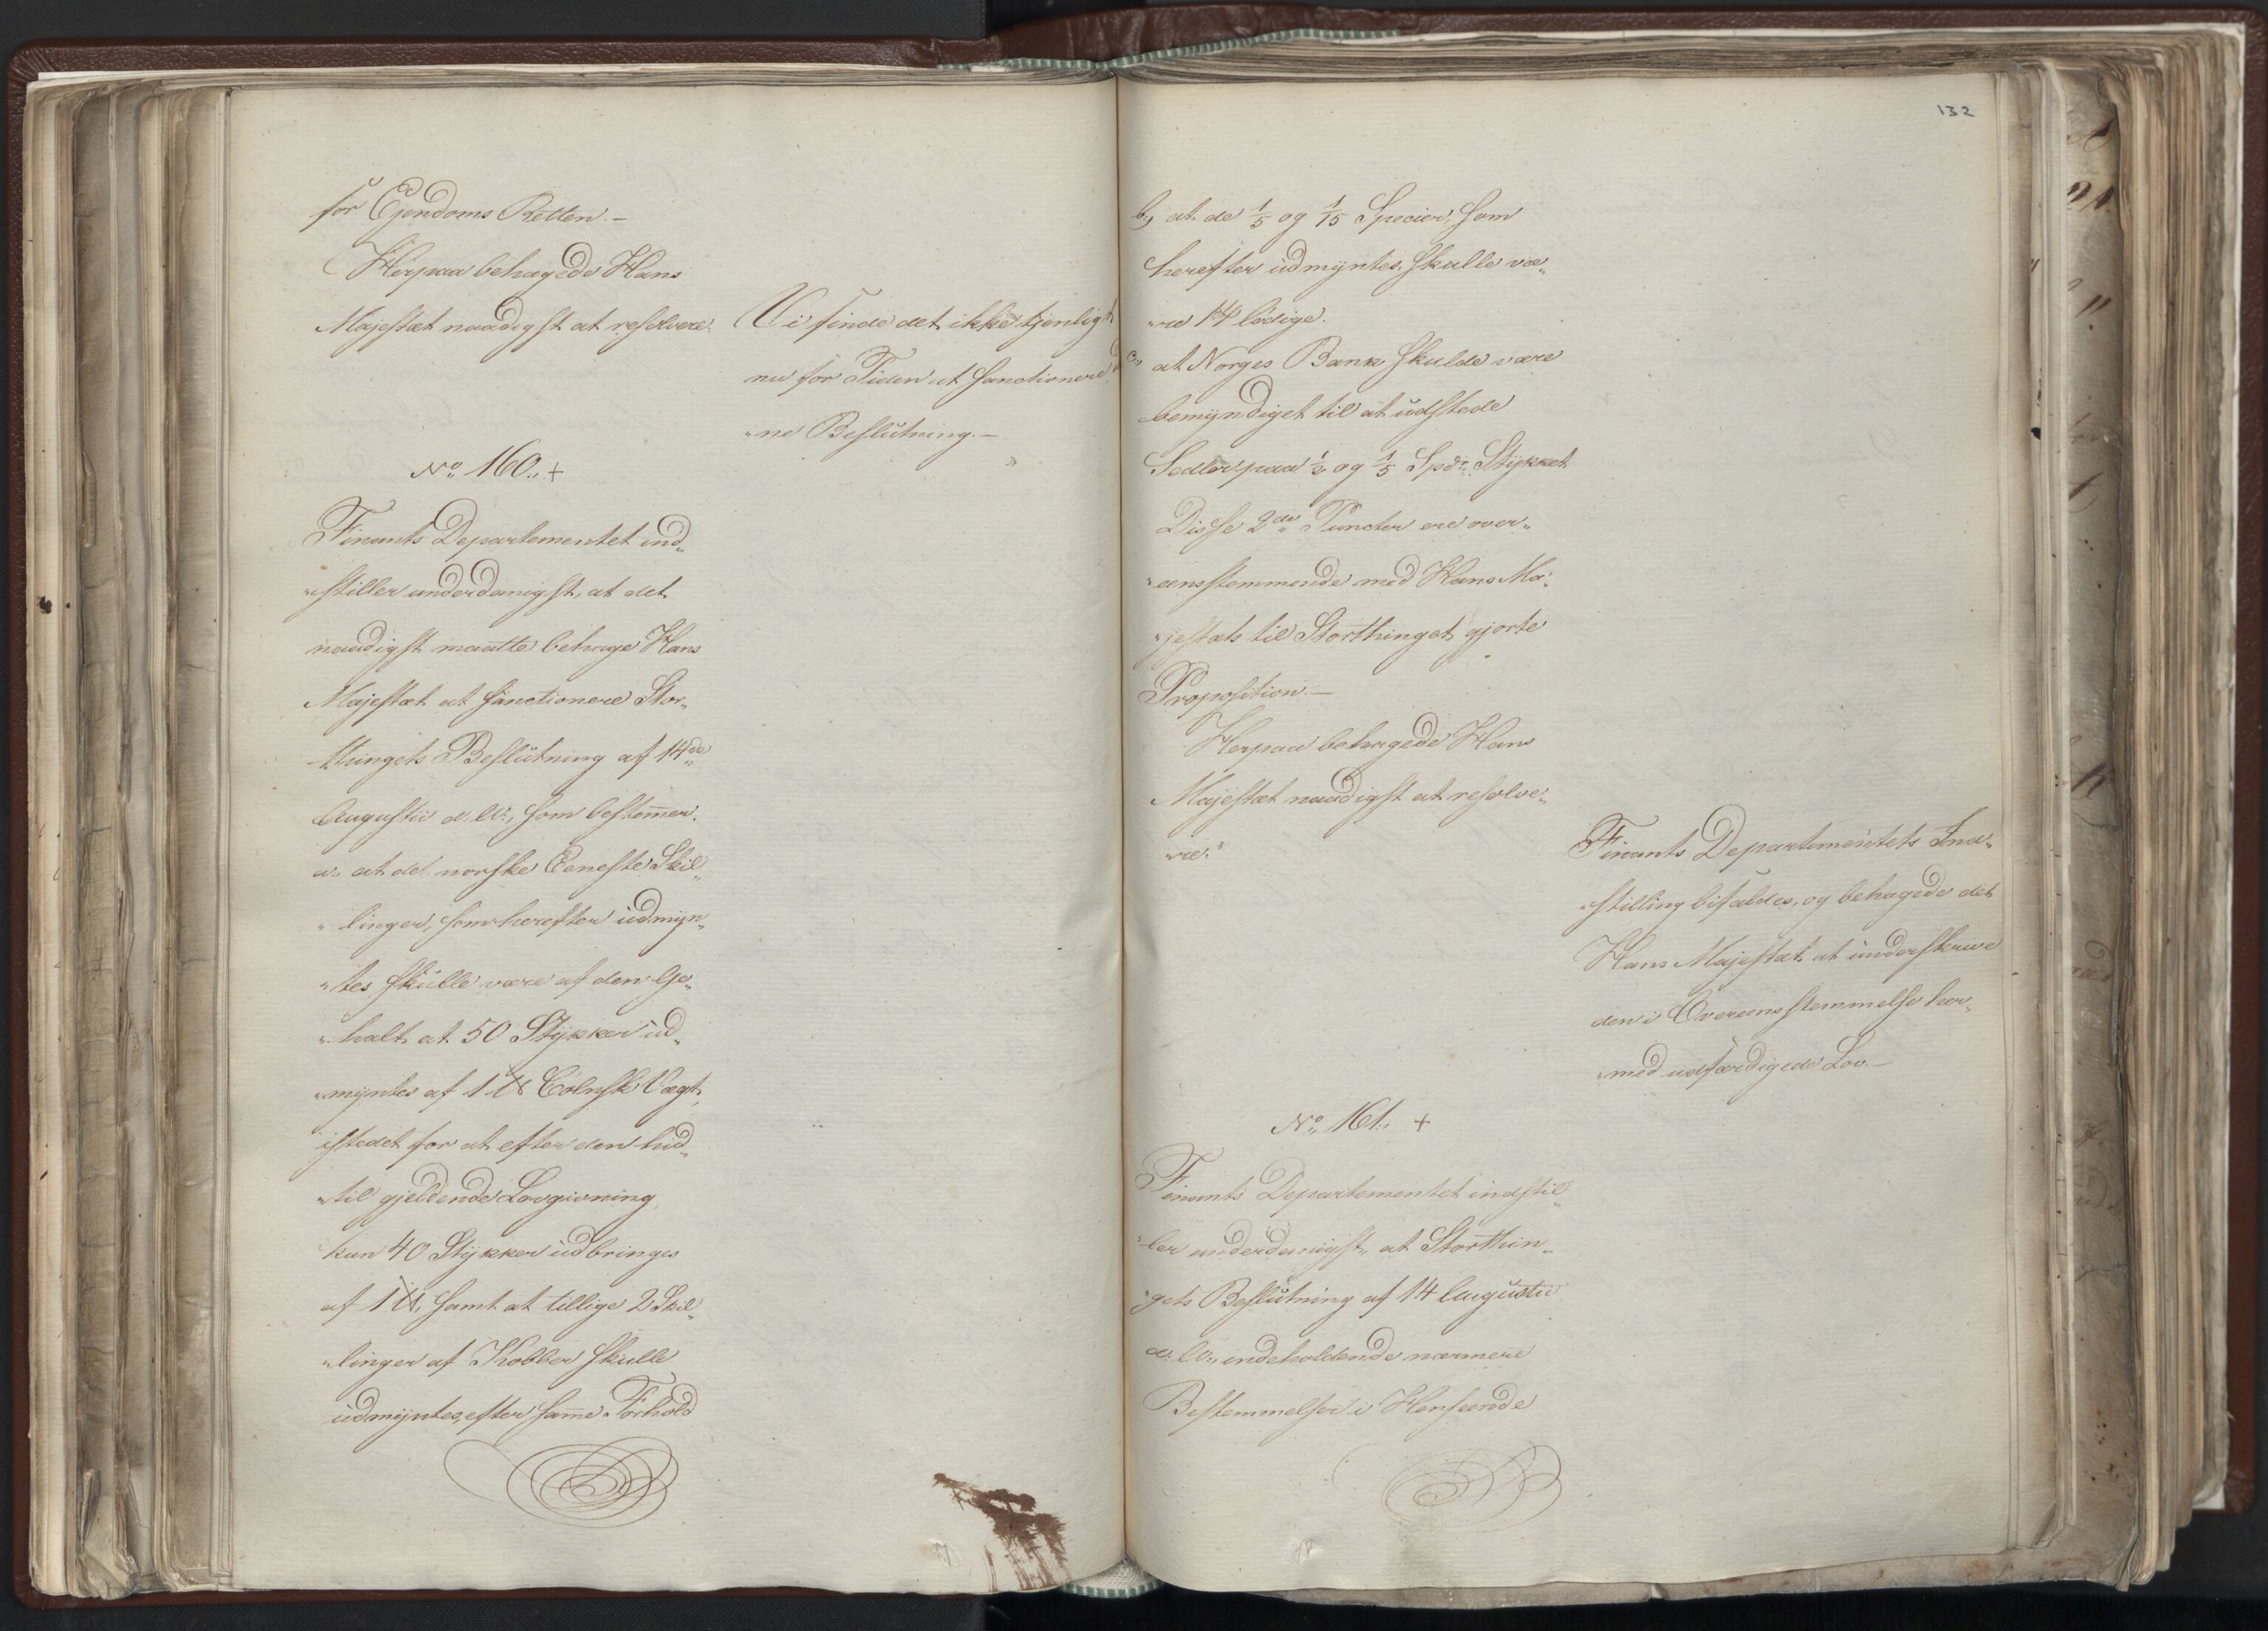 for Ejendoms Retten.-
Herpaa behagede Hans
Majestæt naadigst at resolvere:
Vi finde det ikke tjenligt
nu for Tiden at sanctionere d
„ne Beslutning.-
No. 160. +
Finants Departementet ind„
„stiller underdanigst, at det
naadigst maatte behage Hans
Majestæt at sanctionere Stor„
thingets Beslutning af 14de
Augustii d. A., som bestem̅er.
a., at de norske Eeneste Skil„
„linger, som herefter udmyn„
„tes skulle være af den Ge„
„halt, at 50 Stykker ud„
„myntes af 1 ℔ Cølnsk Vægt,
istedet for at efter den hid„
„til gjeldende Lovgivning
kun 40 Stykker udbringes
af 1 ℔, samt at tillige 2 Skil„
„linger af Kobber skulle
udmyntes, efter sam̅e Forhold
132
b, at de 1/5 og 1/15 Specier, som
herefter udmyntes, skulle væ„
„re 14 lødige.
c., at Norges Bank skulde være
bemyndiget til at udstede
Sedler paa 1/2 og 1/5 Spdr. Stykket
Disse 2de Puncter ere over„
„eensstemmende med Hans Ma„
„jestæts til Storthinget gjorte
Proposition.-
Herpaa behagede Hans
Majestæt naadigst at resolve„
„re:
Finants Departementets Ind„
„stilling bifaldes, og behagede det
Hans Majestæt at underskrive
den i Overeensstemmelse her„
„med udfærdigede Lov.-
No. 161. +
Finants Departementet indstil„
„ler underdanigst, at Storthin„
„gets Beslutning af 14 Augustii
d. A., indeholdende nærmere
Bestemmelser i Henseende